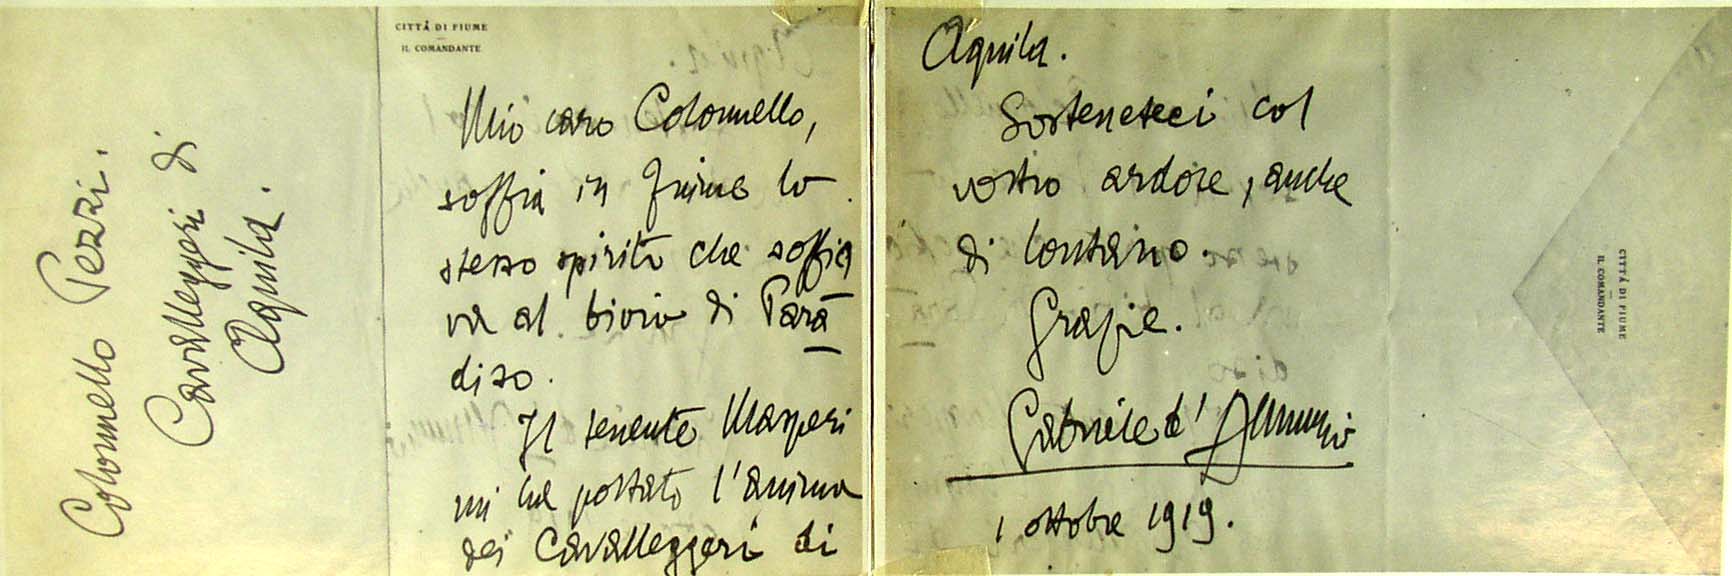 Colonnello Pezzi.
Cavalleggeri di
Aquila.
CITTÁ DI FIUME
IL COMANDANTE
Mio caro Colonnello,
soffia in Fiume lo
stesso spirito che soffia
va al bivio di Para
diso.
Il tenente Masperi
mi ha portato l'anima
dei Cavalleggeri di
Aquila.
Sosteneteci col
vostro ardore, anche
di lontano.
Grazie.
Gabriele d'Annunzio
1 ottobre 1919.
CITTÁ DI FIUME
IL COMANDANTE